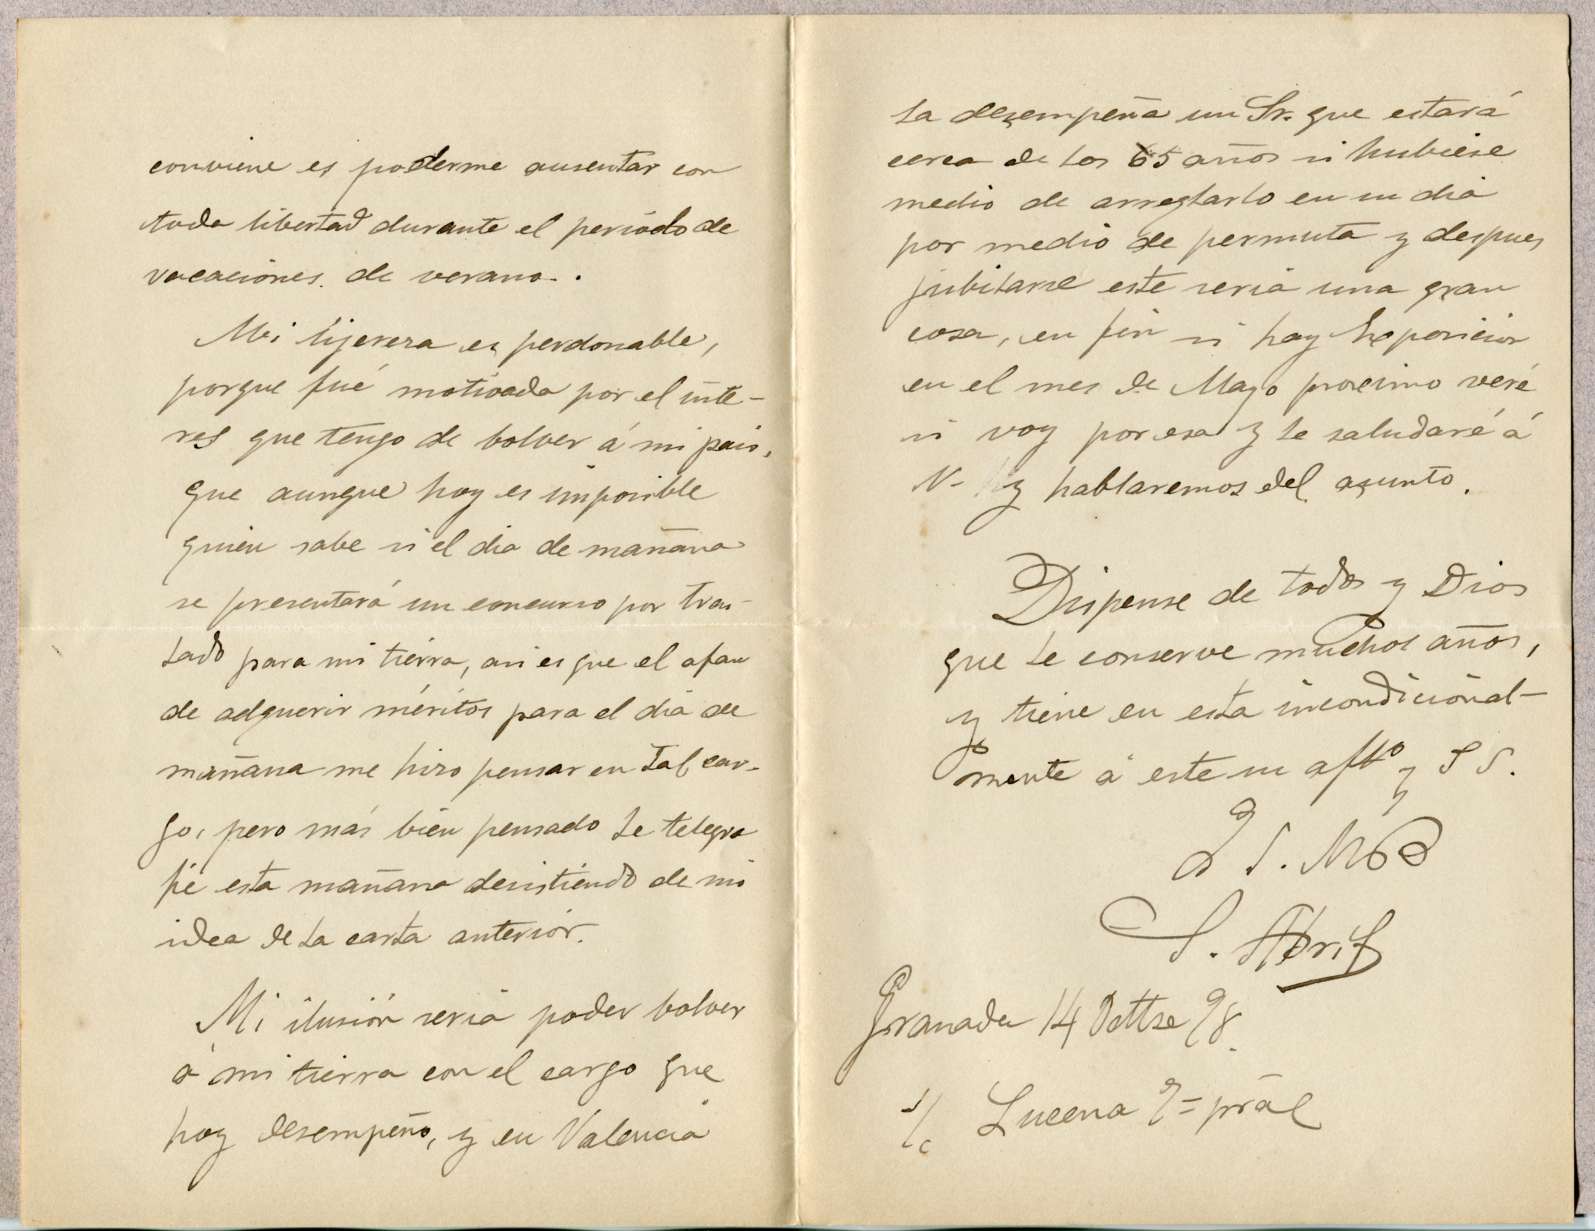 conviene es poderme ausentar con
toda libertad durante el periodo de
vacaciones de verano.
Mi lijereza es perdonable,
porque fué motivada por el inte-
res que tengo de bolver á mi pais,
que aunque hoy es imposible
quien sabe si el dia de mañana
se presentará un concurso por tras-
lado para mi tierra, asi es que el afan
de adquerir méritos para el dia de
mañana me hizo pensar en tal car-
go, pero más bien pensado le telegra
fié esta mañana desistiendo de mi
idea de la carta anterior.
Mi ilusión seria poder bolver
á mi tierra con el cargo que
hoy desempeño, y en Valencia
la desempeña un Sr. que estará
cerca de los 65 años si hubiese
medio de arreglarlo en su dia
por medio de permuta y despues
jubilarse este seria una gran
cosa, en fin si hay
en el mes de Mayo proximo veré
si voy por esa y le saludaré á
V. y hablaremos del asunto.
Dispense de todo y Dios
que le conserve muchos años,
y tiene en esta incondicional-
mente á este su affto y S S.
Q S. M B
S. Abril
Granada 14 98.
S/c Lucena pral